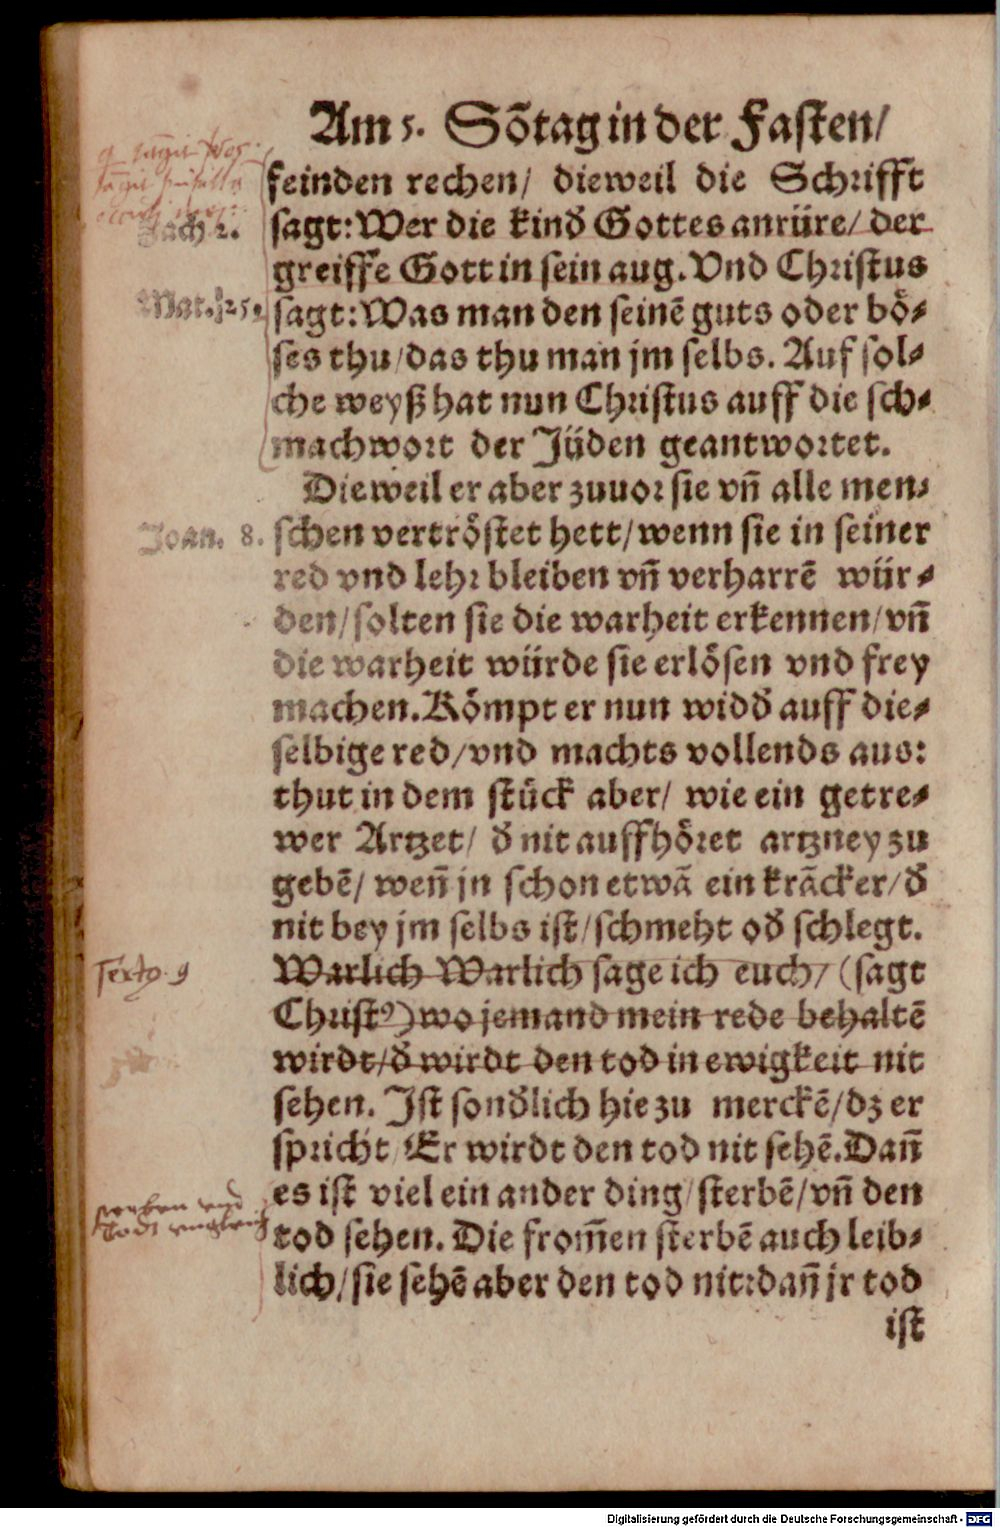 Am 5. Sõtag in der Fasten/
feinden rechen/ dieweil die Schrifft
Zach 2. sagt: Wer die kind̃ Gottes anrüre/ der
greiffe Gott in sein aug. Vnd Christus
Mat. 25. sagt: Was man den seinẽ guts oder bö⸗
ses thu/ das thu man jm selbs. Auf sol⸗
che weyß hat nun Christus auff die sch⸗
machwort der Jüden geantwortet.
Dieweil er aber zuuor sie vñ alle men⸗
Joan. 8. schen vertröstet hett/ wenn sie in seiner
red vnd lehr bleiben vñ verharrẽ wür⸗
den/ solten sie die warheit erkennen/ vñ
die warheit würde sie erlösen vnd frey
machen. Kömpt er nun widd̃ auff die⸗
selbige red/ vnd machts vollends aus:
thut in dem stück aber/ wie ein getre⸗
wer Artzet/ d̃ nit auffhöret artzney zu
gebẽ/ weñ jn schon etwã ein krãcker/ d̃
nit bey jm selbs ist/ schmeht od̃ schlegt.
Texto. 9 Warlich Warlich sage ich euch/ (sagt
Christꝰ) wo jemand mein rede behaltẽ
wirdt/ d̃ wirdt den tod in ewigkeit nit
sehen. Ist sond̃lich hie zu merckẽ/ dz er
spricht/ Er wirdt den tod nit sehẽ. Dañ
es ist viel ein ander ding/ sterbẽ/ vñ den
tod sehen. Die from̃en sterbẽ auch leib⸗
lich/ sie sehẽ aber den tod nit: dañ jr tod
ist
Digitalisierung gefördert durch die Deutsche Forschungsgemeinschaft - DFG